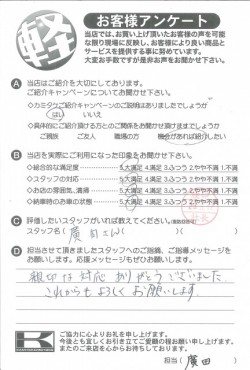 軽
お客様アンケート
当店では、お買い上げ頂いたお客様の声を可能
な限り現場に反映し、お客様により良い商品と
サービスを提供する事に努めています。
大変お手数ですが是非お声をお聞かせ下さい。
A 当店はご紹介を大切にしております。
ご紹介キャンペーンについてお聞かせ下さい。
◇カミタケご紹介キャンペーンのご説明はありましたでしょうか
はい いいえ
◇具体的にご紹介頂ける方とのご関係をお聞かせ頂けますでしょうか
ご親族 ご友人 職場の方 機会があれば紹介したい
B 当店を実際にご利用になった印象をお聞かせ下さい。
◇総合的な満足度 5.大満足 4.満足 3.ふつう 2.やや不満 1.不満
◇スタッフの対応 5.大満足 4.満足 3.ふつう 2.やや不満 1.不満
◇お店の雰囲気、清掃 5.大満足 4.満足 3.ふつう 2.やや不満 1.不満
◇納車時のお車の状態 5.大満足 4.満足 3.ふつう 2.やや不満 1.不満
C 評価したいスタッフがいれば教えてください。
スタッフ名( 廣田さん )( )
D 担当させて頂きましたスタッフへのご指摘、ご指導メッセージを
お願いします。応援メッセージもぜひお願いします。
対応 ありがとうございました。
これからもよろしくお願いします
K
ご協力に心よりお礼を申し上げます。
今後とも宜しくお引き立てご愛顧の程お願い申し上げます。
またのご来店を心からお待ちしております。
担当( 廣田 )